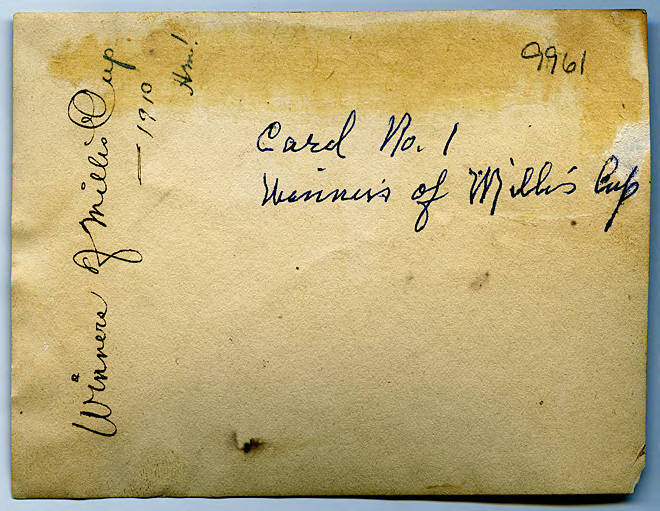 9961
Card No. 1
Winners of Millis Cup
Winners of Millis Cup
— 1910